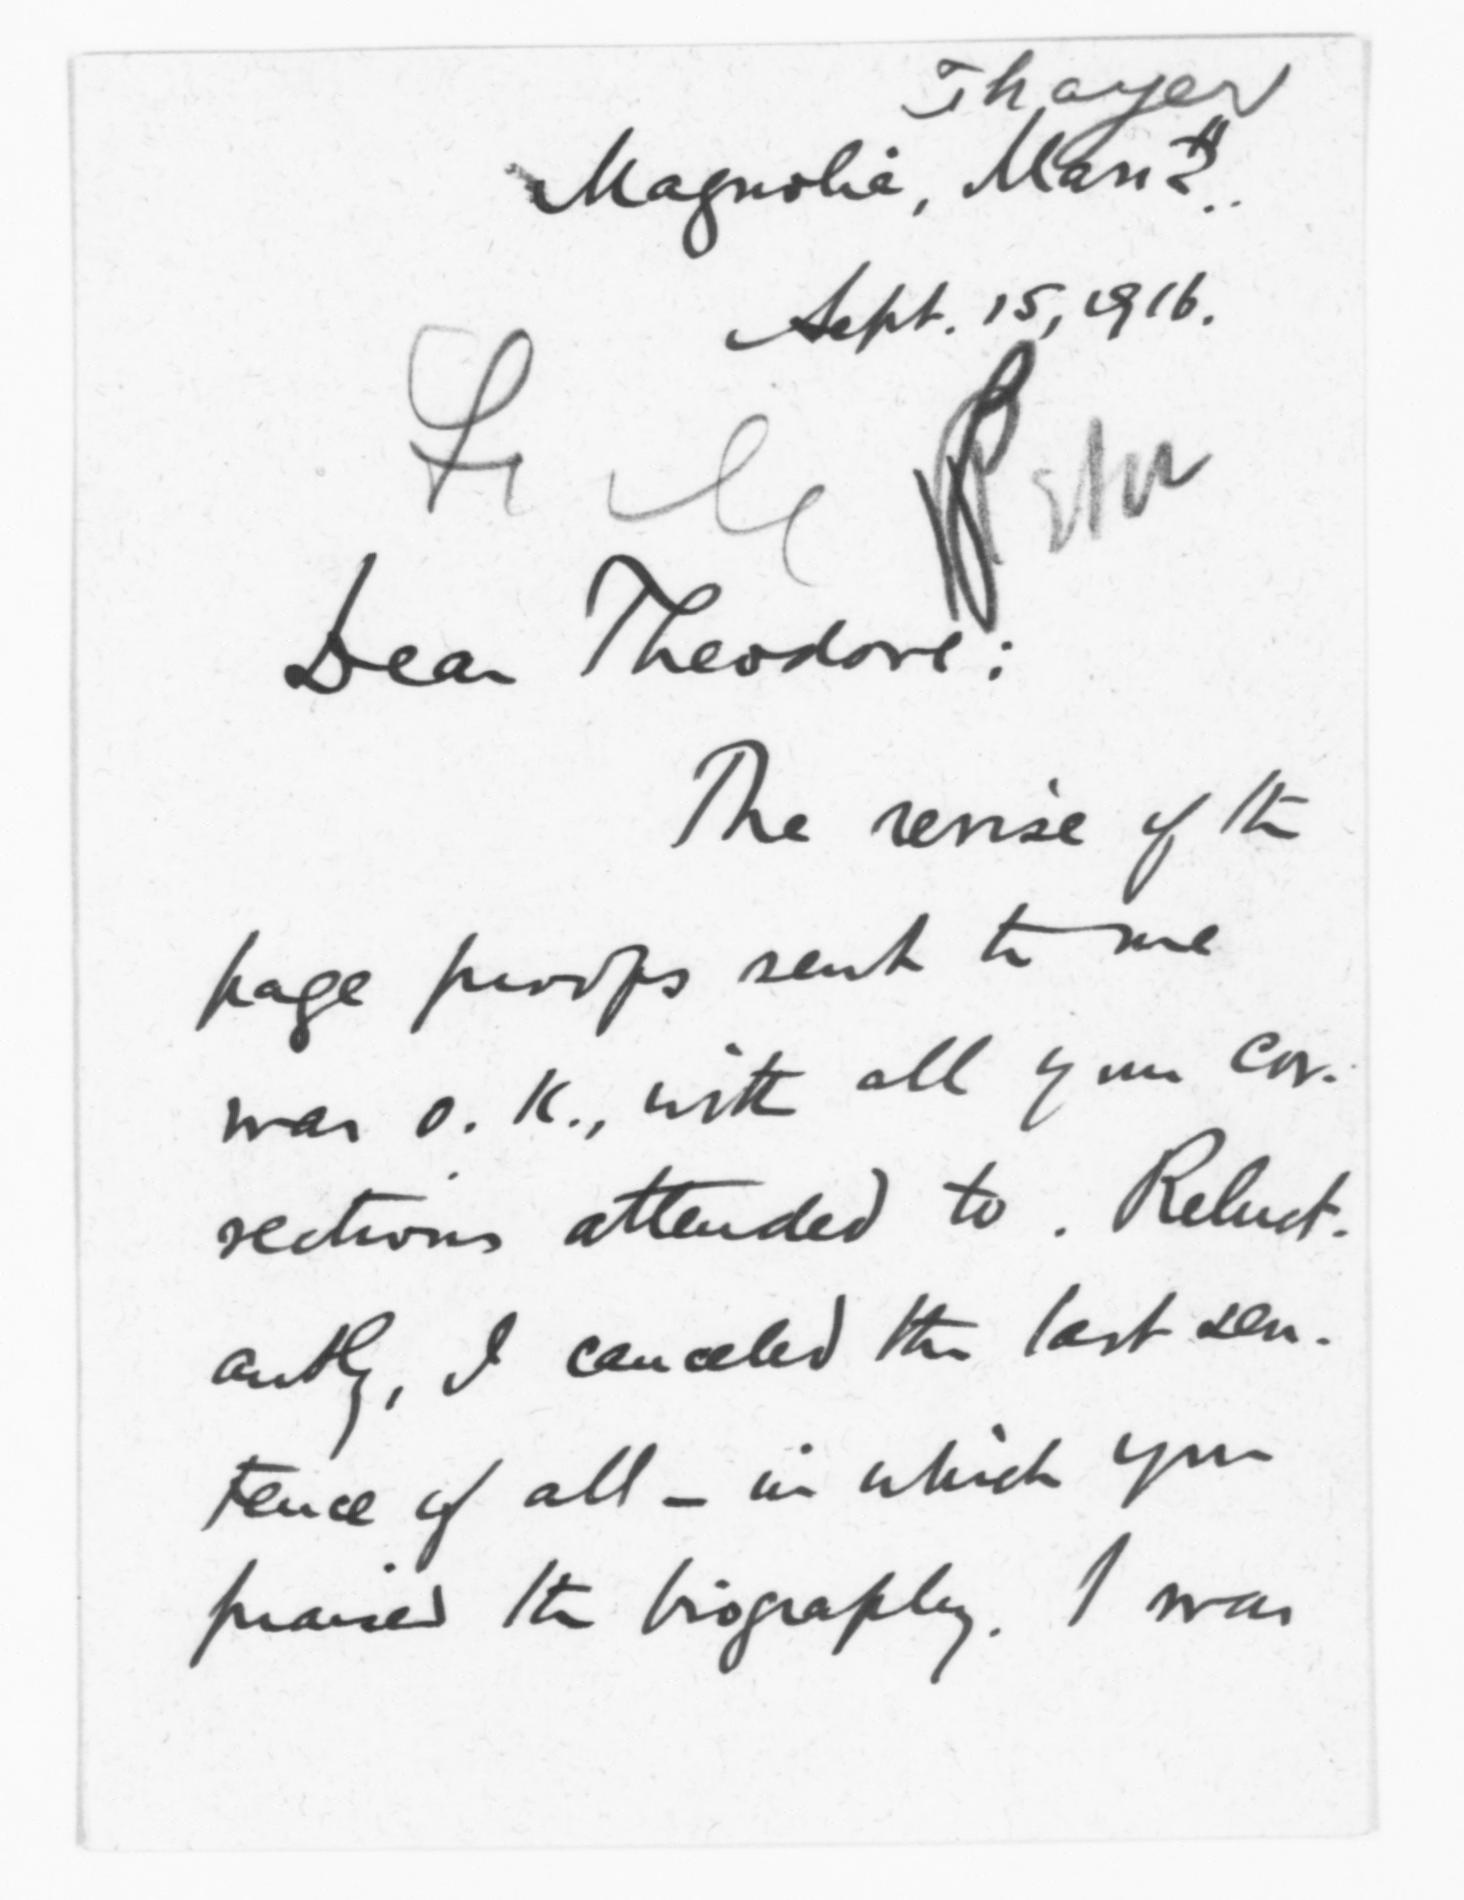 Thayer
Magnolia, Mass.
Sept. 15, 1916.
File
Dear Theodore:
The revise of the
page proofs sent to me
was O.K., with all your cor-
rections attended to. Reluct-
antly, I canceled the last sen-
tence of all – in which you
praised the biography. I was